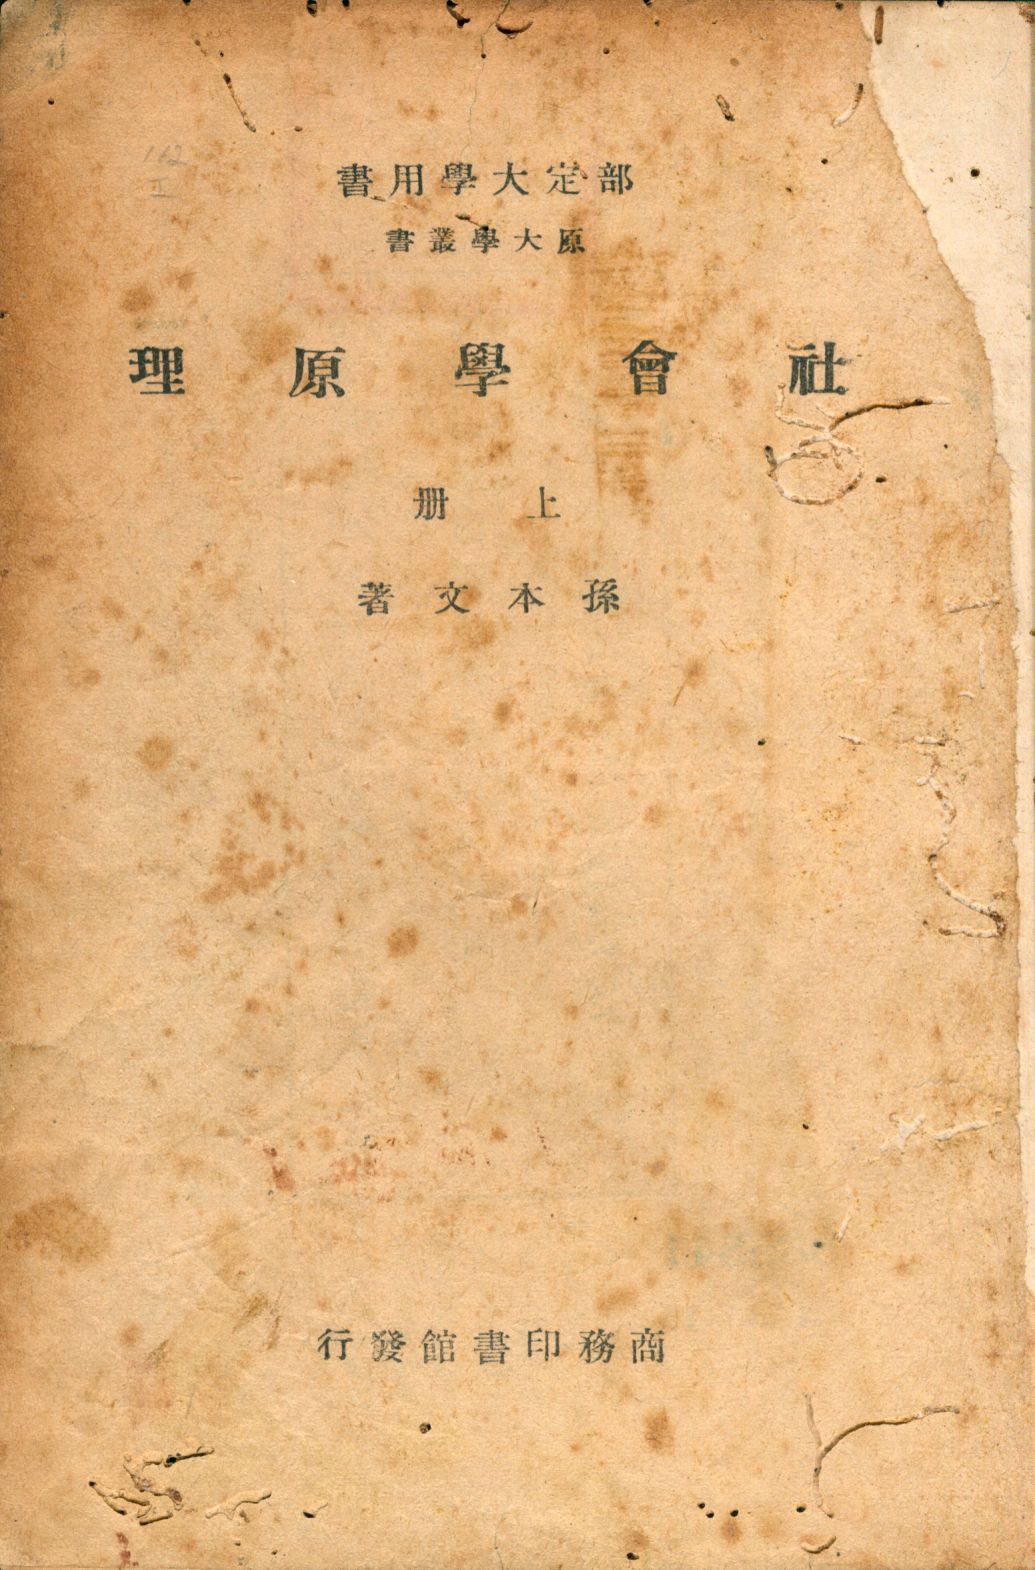 部定大學用書
原大學叢書
社會學原理
上册
孫本文著
商務印書館發行
162
II